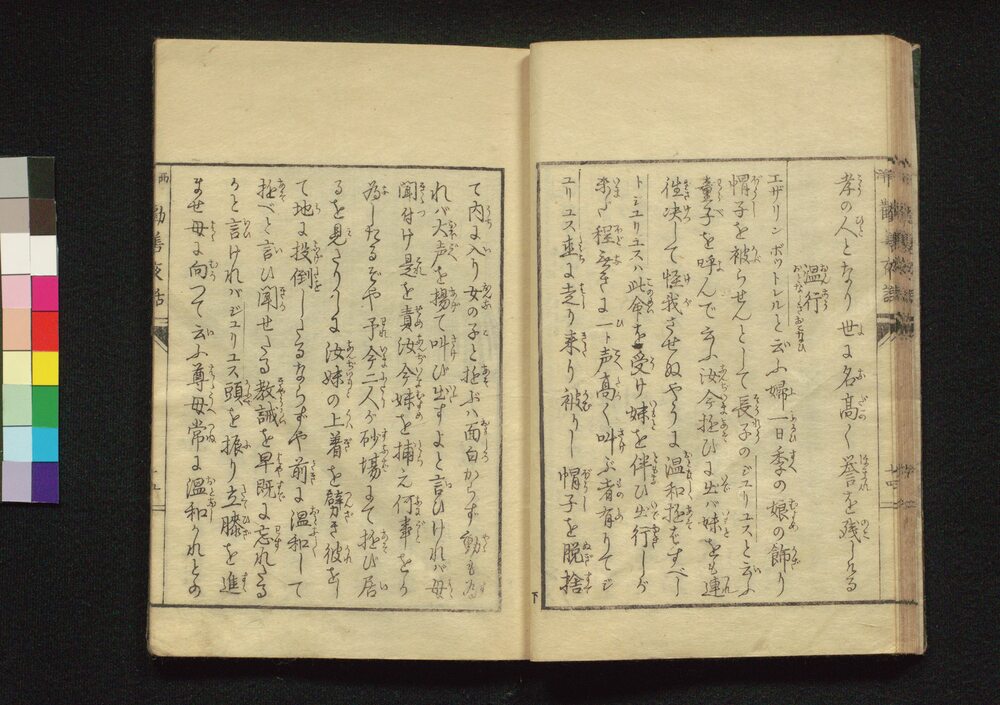 孝の人となり世に名高く誉を残しける
温行
エザリン ボットレルと云ふ婦一日季の娘の飾り
帽子を被らせんとして長子のジュリユスと云ふ
童子を呼んで云ふ汝今遊びに出バ妹をも連
徃决して怪我させぬやうに温和遊をすべし
トジユリユスハ此命を受け妹を伴ひ出行しが
未だ程なきに一ト声高く叫ぶ者有りてジ
ユリユス直に走り来り被りし帽子を脱捨
て内に入り女の子と遊ぶハ面白からず動も為
れバ大声を揚て叫び出すよと言ひけれバ母
聞付け是を責汝今妹を捕え何事をか
為したるぞや予今二人が砂場にて遊び居
るを見たりしに汝妹の上着を劈き彼を
て地に投倒したるならずや前に温和して
遊べと言ひ聞せたる教誡を早既に忘れたる
かと言けれバジユリユス頭を振り立膝を進
ませ母に向つて云ふ尊母常に温和かれとの
西
勧善夜話
下